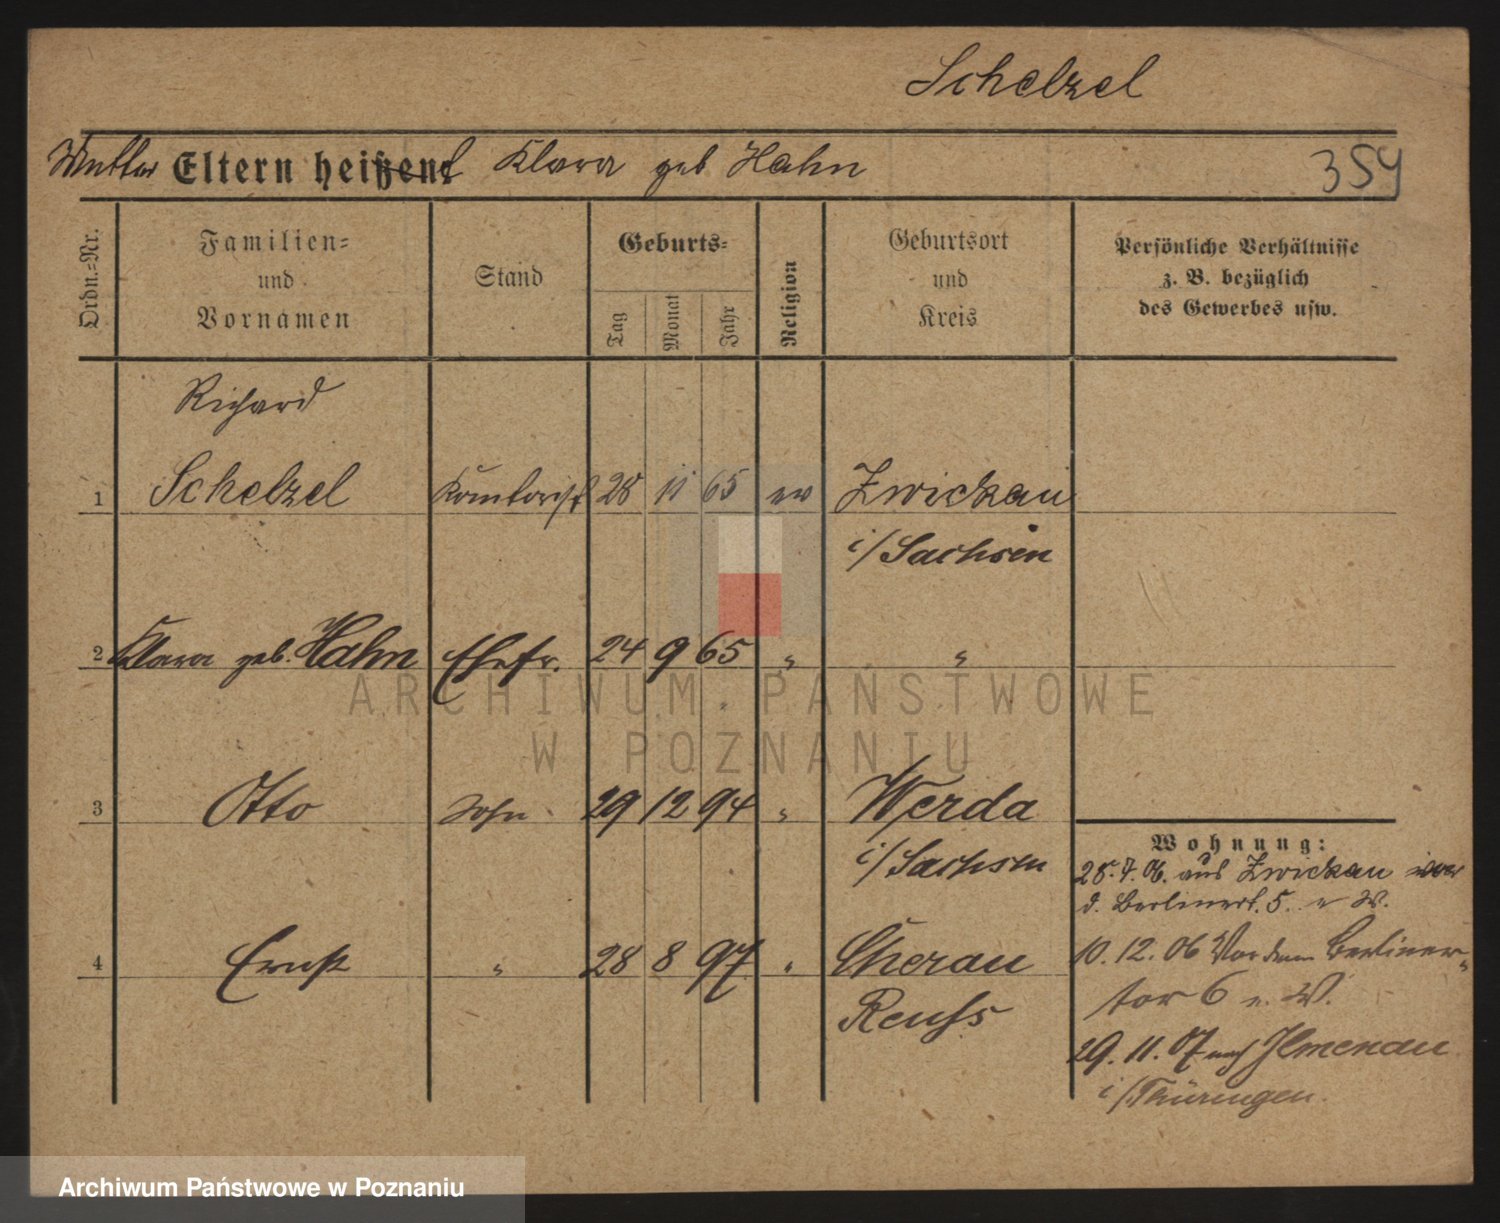 Schelzel
Mutter Eltern heißen Klara geb Hahn
354
Ordn.-Nr.
Familien-
und
Vornamen
Stand
Geburts-
Tag
Monat
Jahr
Religion
Geburtsort
und
Kreis
Persönliche Verhältnisse
z. B. bezüglich
des Gewerbes usw.
Richard
1 Schelzel Komtorist 28 11 65 ev Zwickau
i/Sachsen
2 Klara geb. Hahn Ehefr. 24 9 65 " "
ARCHIWUM PAŃSTWOWE
W POZNANIU
3 Otto Sohn 29 12 94 " Werda
i/Sachsen
Wohnung:
28.7.06. aus Zwickau vor
d. Berlinert. 5. e W.
4 Ernst " 28 8 97 " Cherau
Reuss
10.12.06 Vor dem Berliner-
tor 6 e. W.
29.11.07 nach Ilmenau
i/Thüringen.
Archiwum Państwowe w Poznaniu